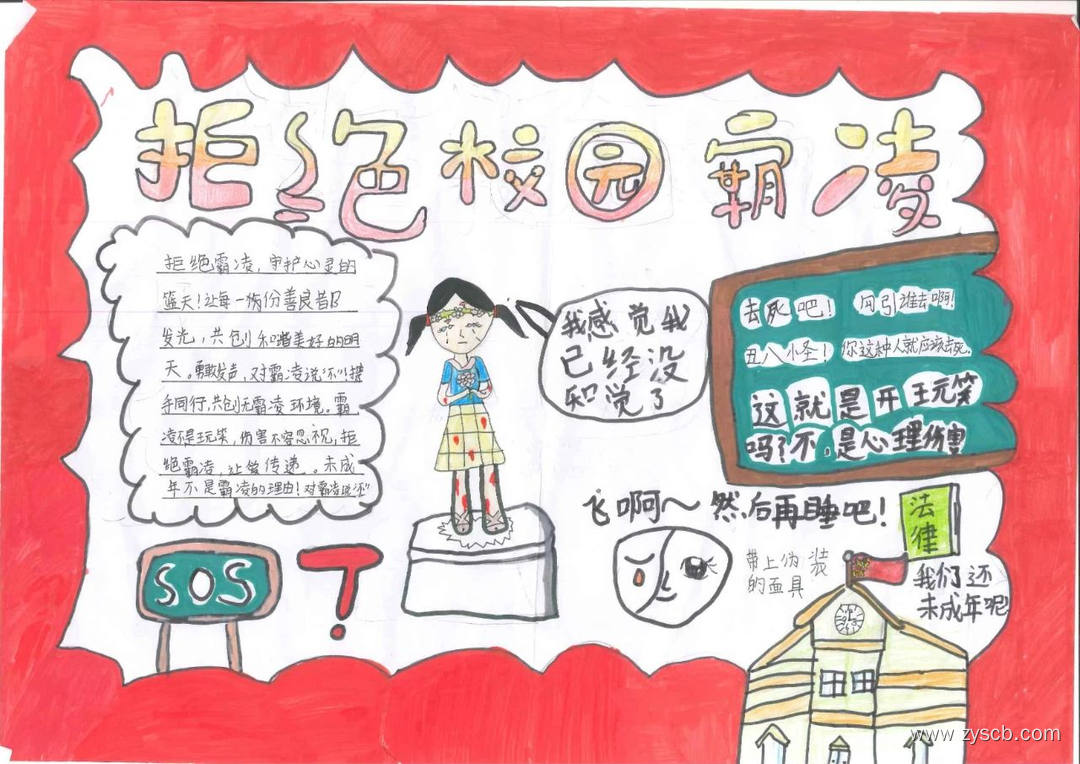 拒绝校园霸凌
拒绝霸凌，守护心灵的
篮天！让每一份善良皆
发光，共创和谐美好的明
天。勇敢发声，对霸凌说“不”！携
手同行，共创无霸凌环境。霸
凌不是玩笑，伤害不容忽视，拒
绝霸凌，让爱传递。未成
年不是霸凌的理由！对霸凌说“不”
我感觉我
已经没
知觉了
去死吧！
勾引谁去啊！
丑八怪！
你这种人就应该去死。
这就是开玩笑
吗？不，是心理伤害
飞啊～然后再睡吧！
法律
SOS
带上伪装
的面具
我们还
未成年呢
www.zyscb.com